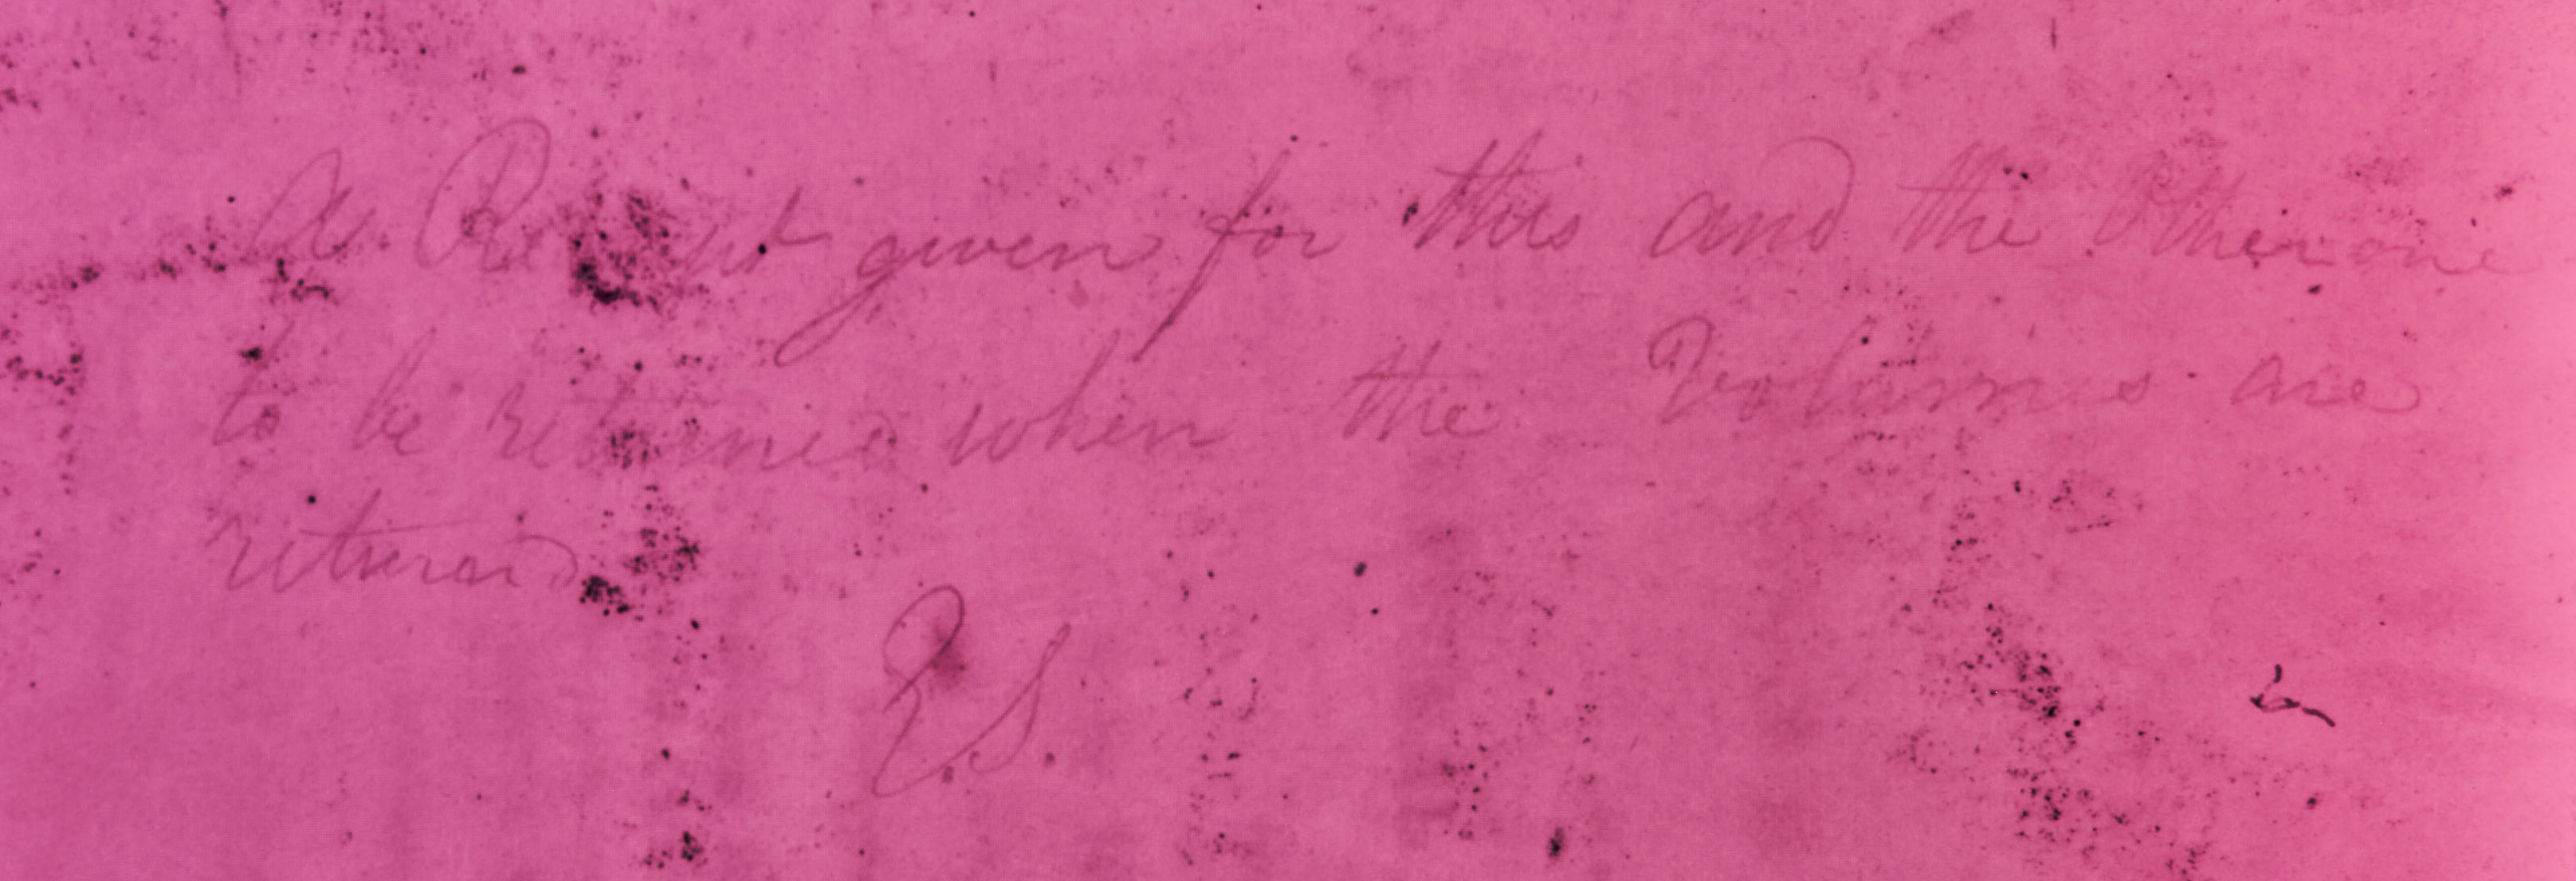 A Receipt given for this and the Other one
to be returned when the Volumes are
returned
E.S.